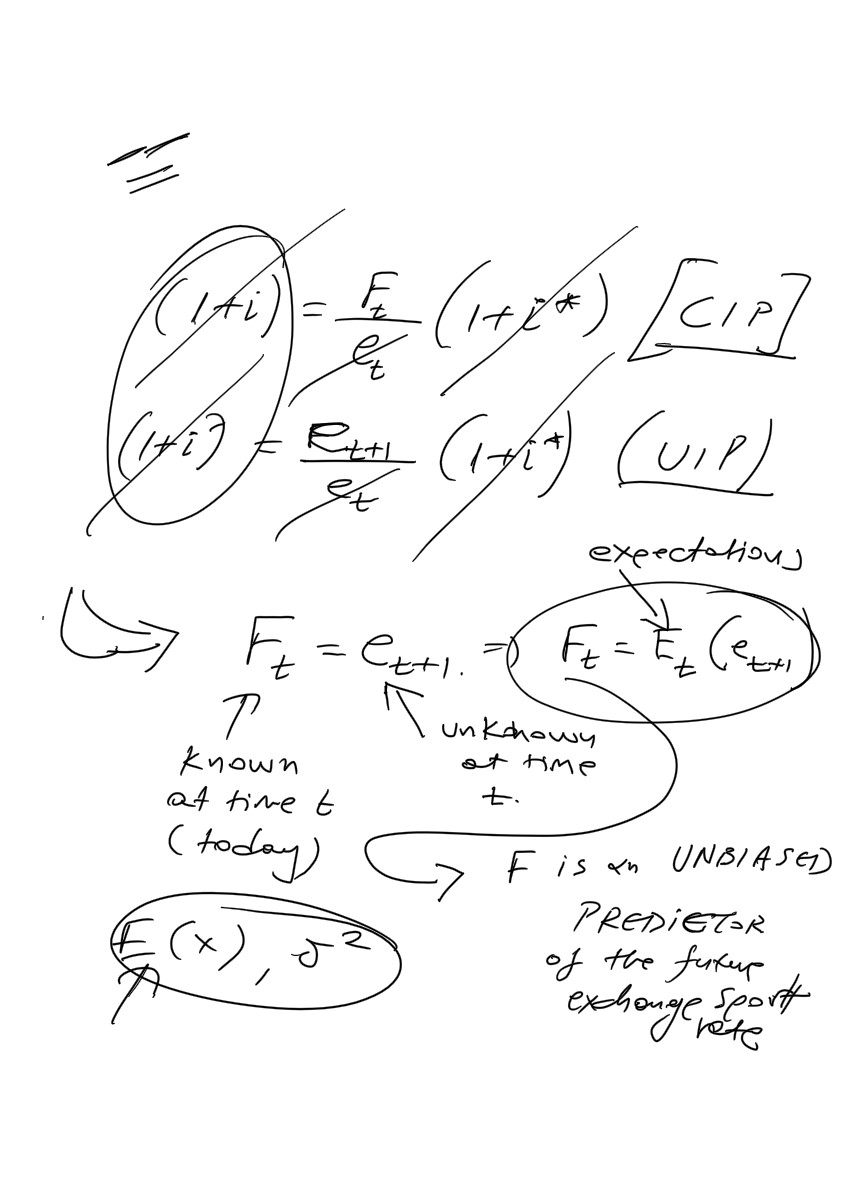 (1+i) = F_t / e_t (1+i*) [CIP]
(1+i) = e_{t+1} / e_t (1+i*) (UIP)
expectations
F_t = e_{t+1}. ⇒ F_t = E_t (e_{t+1}
known
at time t
(today)
unknown
at time
t.
F is an UNBIASED
PREDICTOR
of the future
exchange spot
rate
E(x), σ²